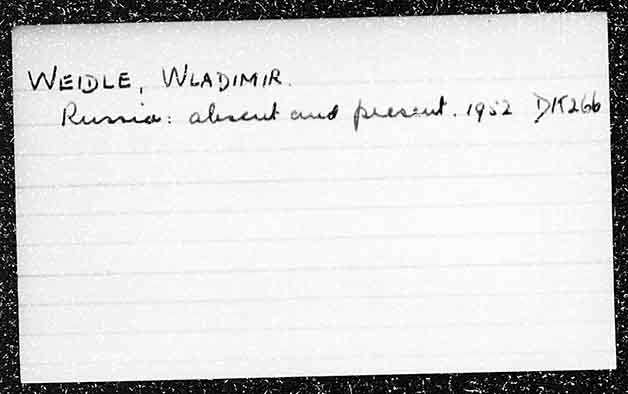 WEIDLE, WLADIMIR.
Russia: absent and present. 1952 DK266